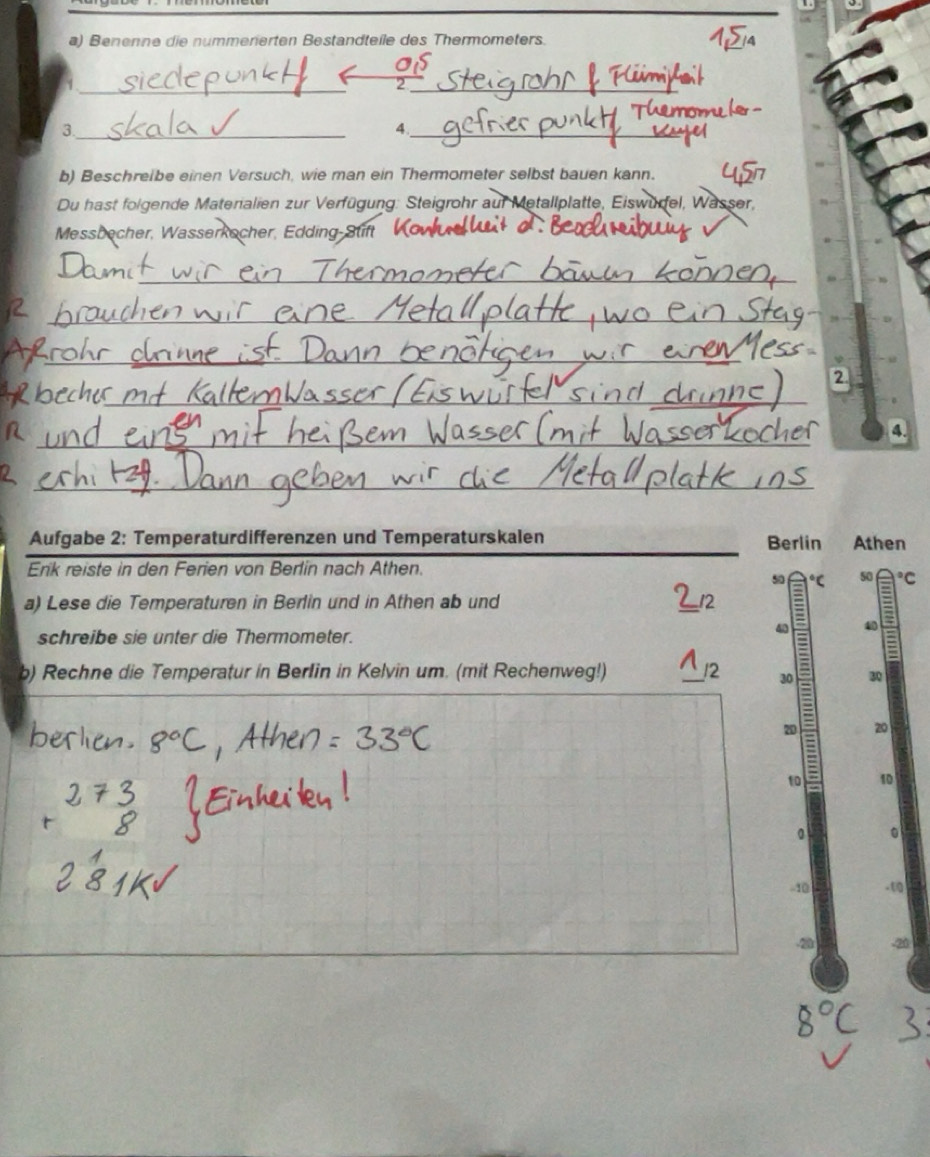 Aufgabe 1: Thermometer
a) Benenne die nummerierten Bestandteile des Thermometers. 1,5/4
1. siedepunkt f ← 0,5 2. Steigrohr f Flüssigkeit
3. skala ✓ 4. gefrierpunkt f Thermometer-
kugel
b) Beschreibe einen Versuch, wie man ein Thermometer selbst bauen kann. 4,5/7
Du hast folgende Materialien zur Verfügung: Steigrohr auf Metallplatte, Eiswürfel, Wasser,
Messbecher, Wasserkocher, Edding-Stift Korrektheit d. Beschreibung ✓
Damit wir ein Thermometer bauen können,
R brauchen wir eine Metallplatte, wo ein Steig-
AR rohr drinne ist. Dann benötigen wir einen Mess-
AR becher mit Kaltem Wasser (Eiswürfel ✓ sind drinne)
R und eins en mit heißem Wasser (mit Wasserkocher
R erhitzt. Dann geben wir die Metallplatte ins
2.
4.
Aufgabe 2: Temperaturdifferenzen und Temperaturskalen
Erik reiste in den Ferien von Berlin nach Athen.
a) Lese die Temperaturen in Berlin und in Athen ab und 2/2
schreibe sie unter die Thermometer.
b) Rechne die Temperatur in Berlin in Kelvin um. (mit Rechenweg!) 1/2
berlien. 8°C, Athen = 33°C
273
+ 8 } Einheiten!
1
281K ✓
Berlin Athen
50 °C 50 °C
40 40
30 30
20 20
10 10
0 0
-10 -10
-20 -20
8°C 33
✓